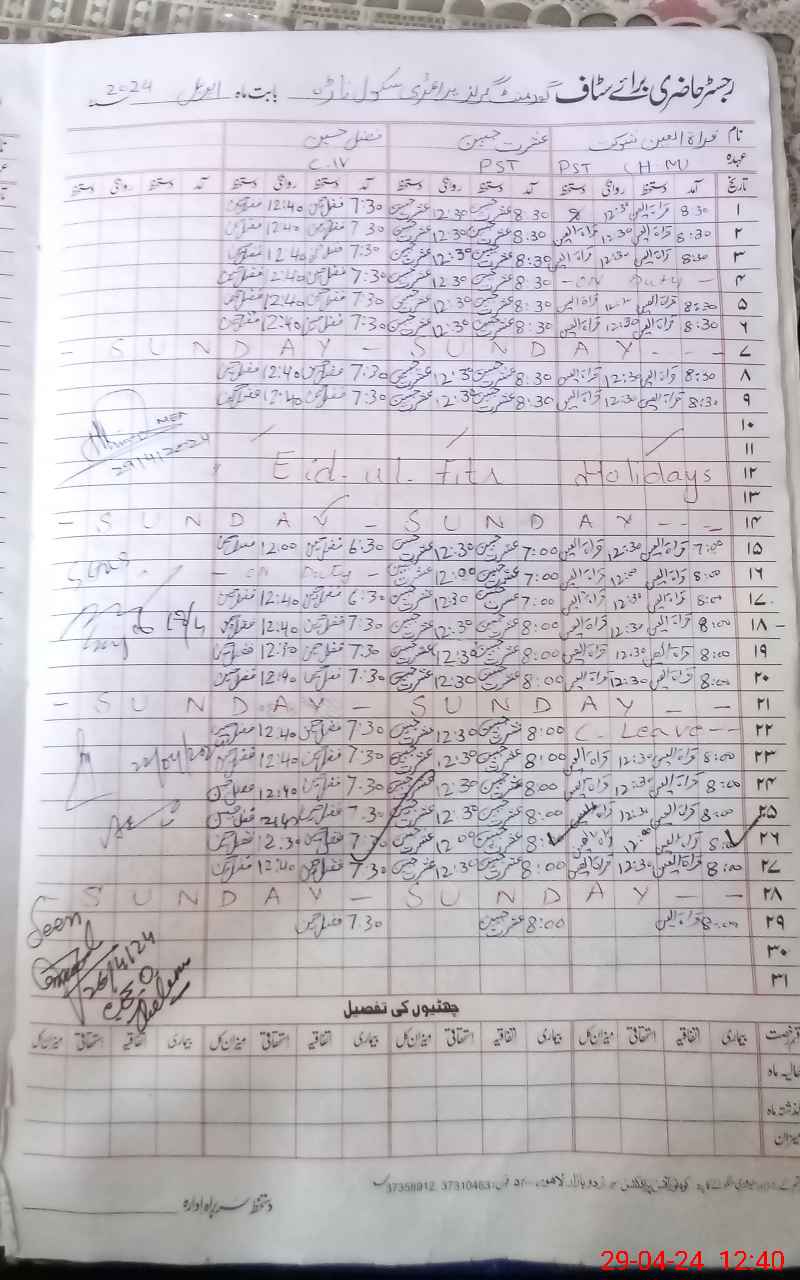 رجسٹر حاضری برائے سٹاف گورنمنٹ گرلز پرائمری سکول ناڑہ بابت ماہ اپریل 2024
نام قراۃ العین شوکت عشرت حسین فضل حسین
عہدہ PST (H.M) PST C.IV
تاریخ آمد دستخط روانگی دستخط آمد دستخط روانگی دستخط آمد دستخط روانگی دستخط آمد دستخط روانگی دستخط
۱ 8:30 قراۃ العین 12:30 8:30 عشرت حسین 12:30 عشرت حسین 7:30 فضل حسین 12:40 فضل حسین
۲ 8:30 قراۃ العین 12:30 قراۃ العین 8:30 عشرت حسین 12:30 عشرت حسین 7:30 فضل حسین 12:40 فضل حسین
۳ 8:30 قراۃ العین 12:30 قراۃ العین 8:30 عشرت حسین 12:30 عشرت حسین 7:30 فضل حسین 12:40 فضل حسین
۴ - ON Duty - 8:30 عشرت حسین 12:30 عشرت حسین 7:30 فضل حسین 12:40 فضل حسین
۵ 8:30 قراۃ العین 12:30 قراۃ العین 8:30 عشرت حسین 12:30 عشرت حسین 7:30 فضل حسین 12:40 فضل حسین
۶ 8:30 قراۃ العین 12:30 قراۃ العین 8:30 عشرت حسین 12:30 عشرت حسین 7:30 فضل حسین 12:40 فضل حسین
۷ - SUNDAY - SUNDAY - - -
۸ 8:30 قراۃ العین 12:30 قراۃ العین 8:30 عشرت حسین 12:30 عشرت حسین 7:30 فضل حسین 12:40 فضل حسین
۹ 8:30 قراۃ العین 12:30 قراۃ العین 8:30 عشرت حسین 12:30 عشرت حسین 7:30 فضل حسین 12:40 فضل حسین
MEA
29/4/2024
۱۰
۱۱
۱۲ Eid-ul-Fitr Holidays
۱۳
۱۴ - SUNDAY - SUNDAY - - -
۱۵ 7:00 قراۃ العین 12:30 قراۃ العین 7:00 عشرت حسین 12:30 عشرت حسین 6:30 فضل حسین 12:00 فضل حسین
۱۶ 8:00 قراۃ العین 12:00 قراۃ العین 7:00 عشرت حسین 12:00 عشرت حسین - on Duty -
۱۷ 8:00 قراۃ العین 12:30 قراۃ العین 7:00 عشرت حسین 12:30 عشرت حسین 6:30 فضل حسین 12:40 فضل حسین
۱۸ 8:00 قراۃ العین 12:30 قراۃ العین 8:00 عشرت حسین 12:30 عشرت حسین 7:30 فضل حسین 12:40 فضل حسین
۱۹ 8:00 قراۃ العین 12:30 قراۃ العین 8:00 عشرت حسین 12:30 عشرت حسین 7:30 فضل حسین 12:30 فضل حسین
۲۰ 8:00 قراۃ العین 12:30 قراۃ العین 8:00 عشرت حسین 12:30 عشرت حسین 7:30 فضل حسین 12:40 فضل حسین
۲۱ - SUNDAY - SUNDAY - -
۲۲ C. Leave - - 8:00 عشرت حسین 12:30 عشرت حسین 7:30 فضل حسین 12:40 فضل حسین
۲۳ 8:00 قراۃ العین 12:30 قراۃ العین 8:00 عشرت حسین 12:30 عشرت حسین 7:30 فضل حسین 12:40 فضل حسین
۲۴ 8:00 قراۃ العین 12:30 قراۃ العین 8:00 عشرت حسین 12:30 عشرت حسین 7:30 فضل حسین 12:40 فضل حسین
۲۵ 8:00 قراۃ العین 12:30 قراۃ العین 8:00 عشرت حسین 12:30 عشرت حسین 7:30 فضل حسین فضل حسین
۲۶ قراۃ العین 12:00 قراۃ العین عشرت حسین 12:00 عشرت حسین 7:30 فضل حسین 12:30 فضل حسین
۲۷ 8:00 قراۃ العین 12:30 قراۃ العین 8:00 عشرت حسین 12:30 عشرت حسین 7:30 فضل حسین 12:40 فضل حسین
۲۸ - SUNDAY - SUNDAY - -
۲۹ 8:00 قراۃ العین 8:00 عشرت حسین 7:30 فضل حسین
۳۰
۳۱
Seen
26/4/24
C.E.O
Jhelum
چھٹیوں کی تفصیل
قسم رخصت بیماری اتفاقیہ استحقاقی میزان کل بیماری اتفاقیہ استحقاقی میزان کل بیماری اتفاقیہ استحقاقی میزان کل بیماری اتفاقیہ استحقاقی میزان کل
حالیہ ماہ
گذشتہ ماہ
میزان
37358912, 37310463
دستخط سربراہ ادارہ
29-04-24 12:40